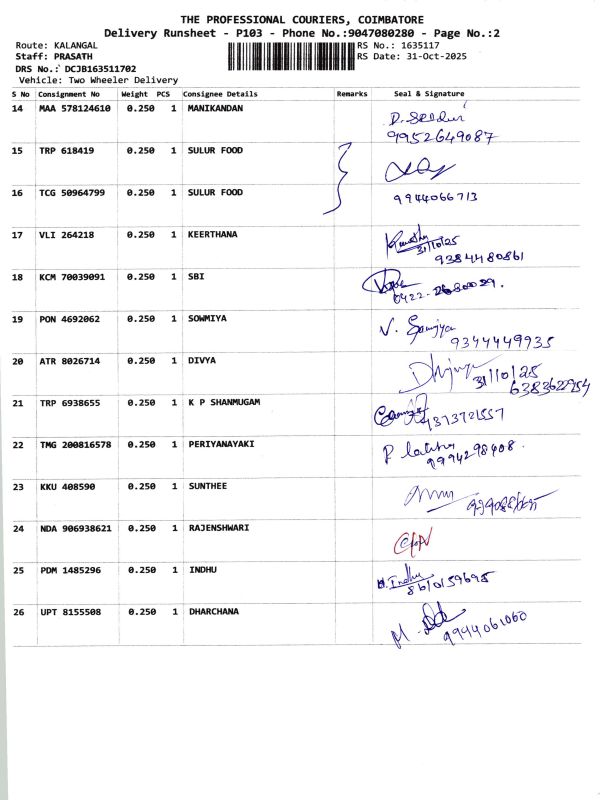 THE PROFESSIONAL COURIERS, COIMBATORE
Delivery Runsheet - P103 - Phone No.:9047080280 - Page No.:2
Route: KALANGAL
RS No.: 1635117
Staff: PRASATH
RS Date: 31-Oct-2025
DRS No.: DCJB163511702
Vehicle: Two Wheeler Delivery
S No Consignment No Weight PCS Consignee Details Remarks Seal & Signature
14 MAA 578124610 0.250 1 MANIKANDAN
9952649087
15 TRP 618419 0.250 1 SULUR FOOD
16 TCG 50964799 0.250 1 SULUR FOOD
9944066713
17 VLI 264218 0.250 1 KEERTHANA
31/10/25
9384480861
18 KCM 70039091 0.250 1 SBI
19 PON 4692062 0.250 1 SOWMIYA
V. Sowmiya
9344449935
20 ATR 8026714 0.250 1 DIVYA
31/10/25
6383622954
21 TRP 6938655 0.250 1 K P SHANMUGAM
22 TMG 200816578 0.250 1 PERIYANAYAKI
9994298408.
23 KKU 408590 0.250 1 SUNTHEE
24 NDA 906938621 0.250 1 RAJENSHWARI
25 PDM 1485296 0.250 1 INDHU
Indhu
8610159695
26 UPT 8155508 0.250 1 DHARCHANA
9944061060